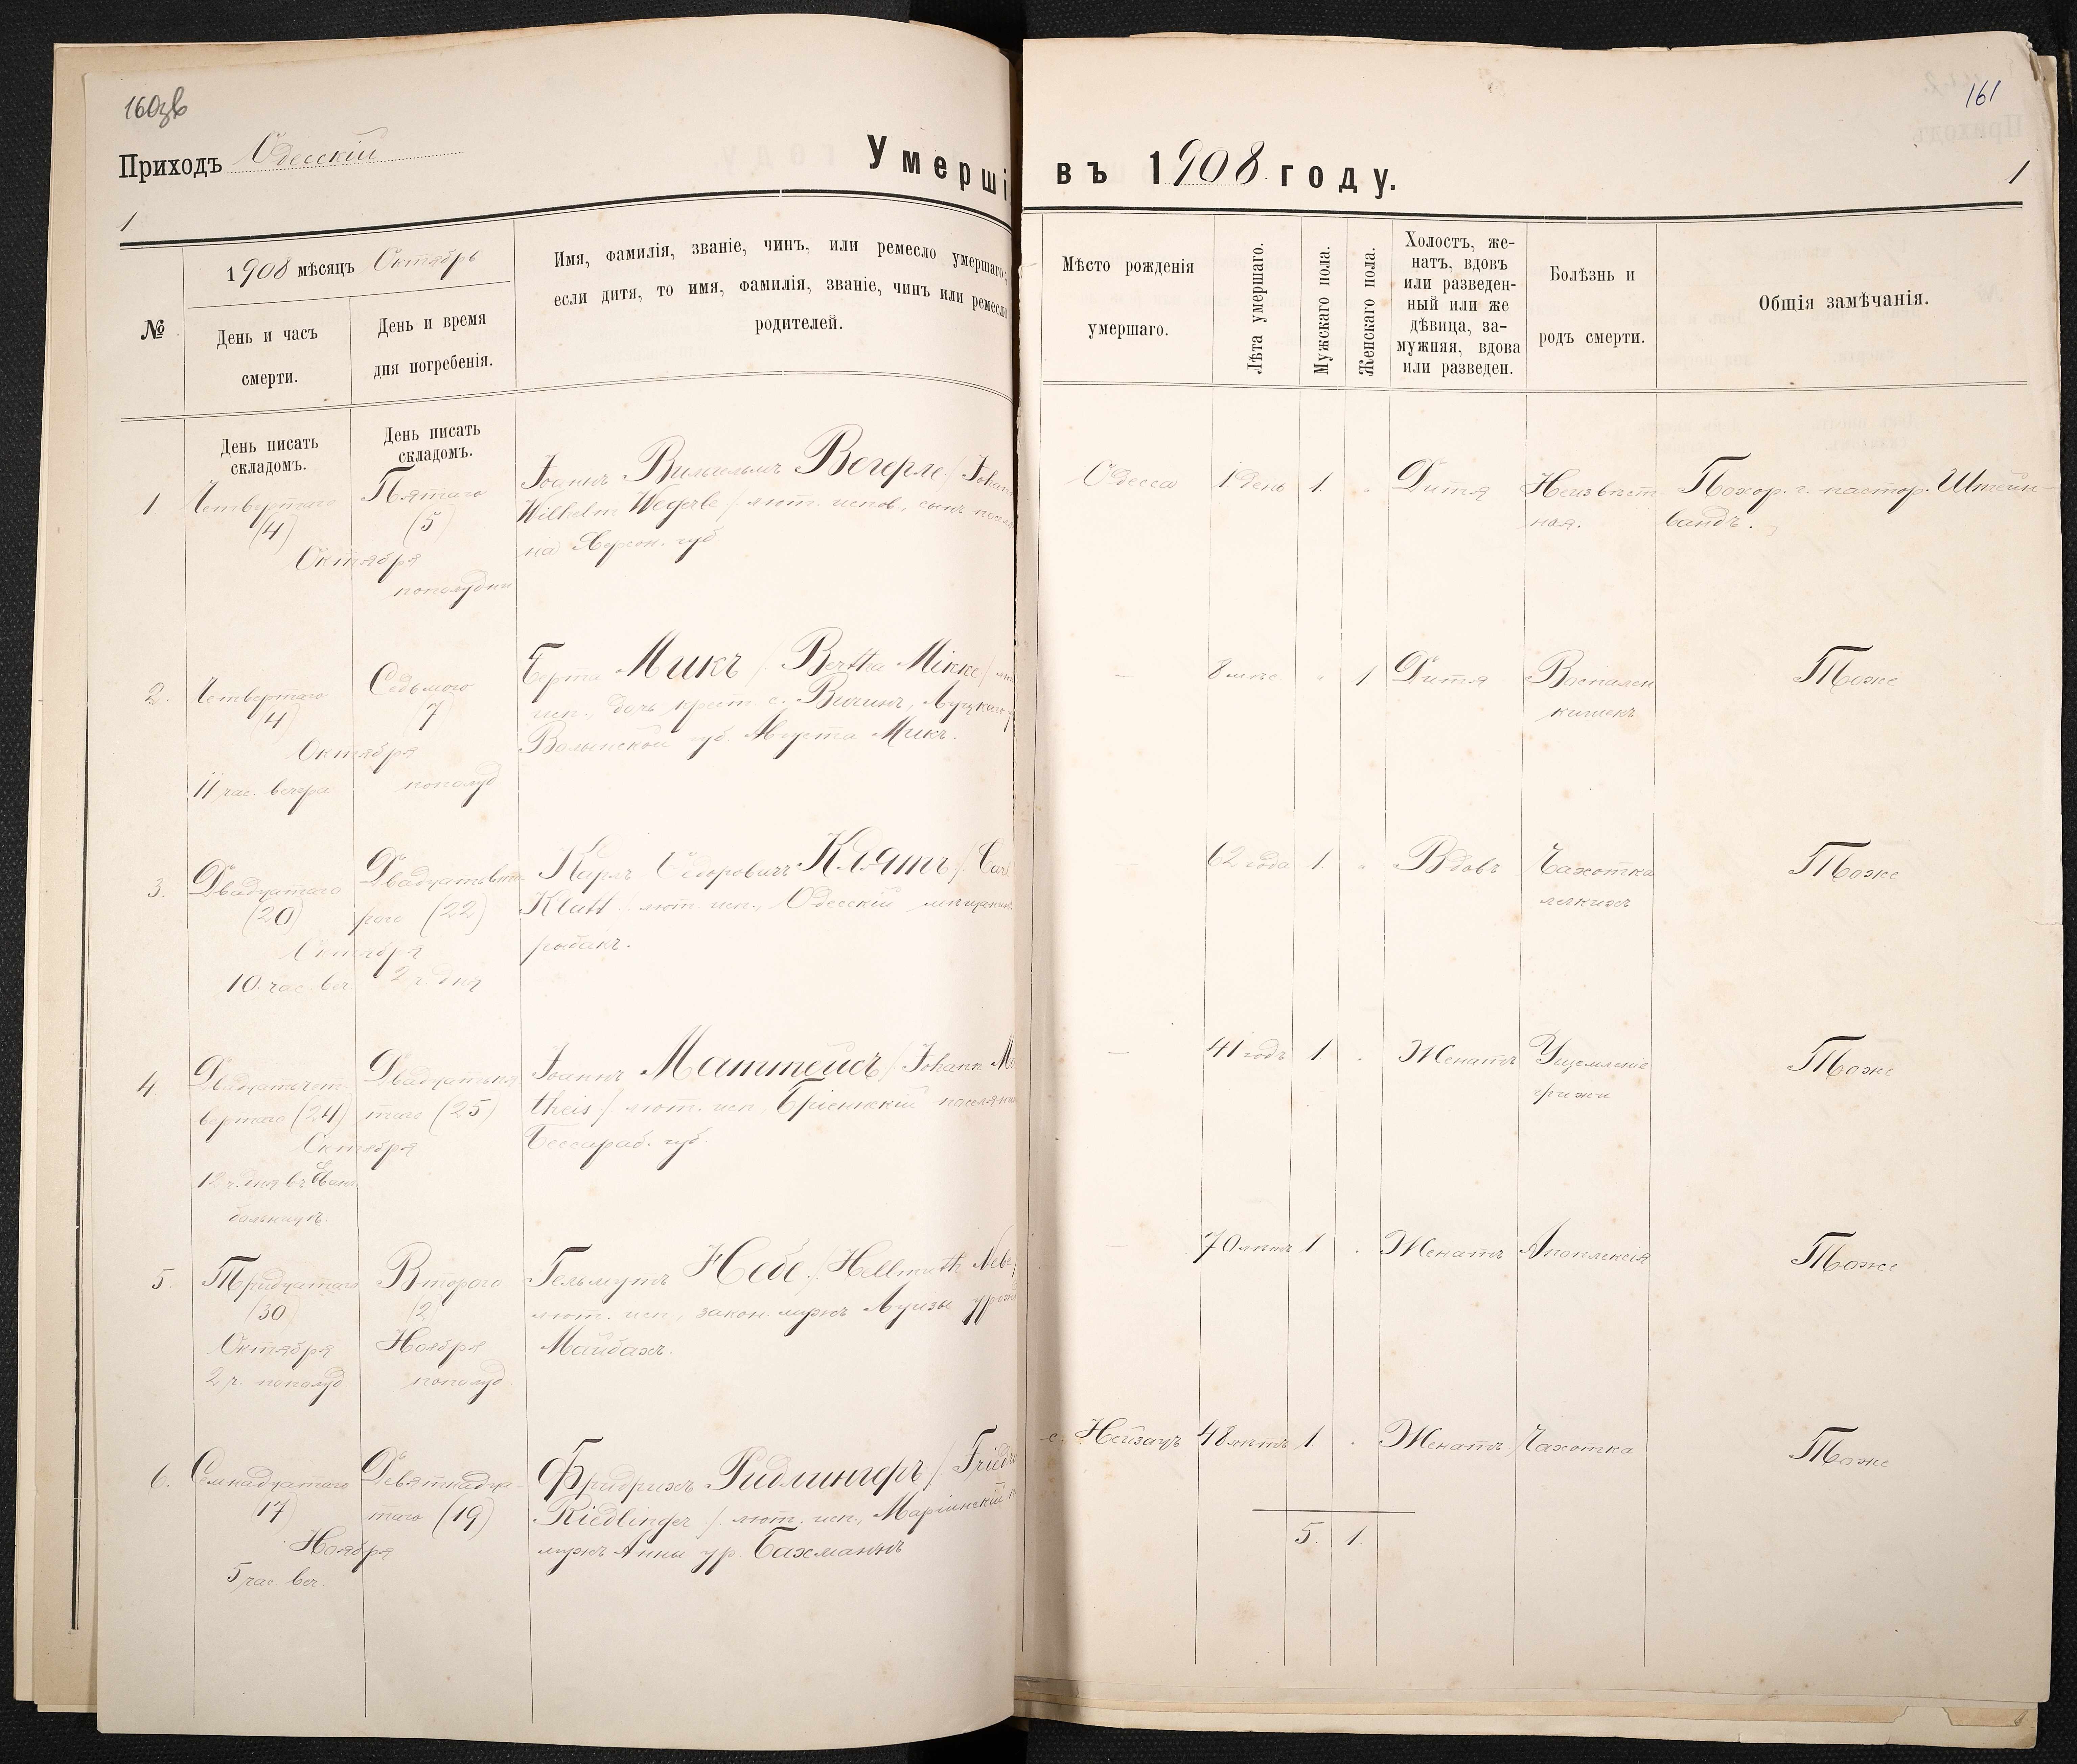 160зв
Приходъ Одесскій
Умерші
1
№
1908 мѣсяцъ Октябрь
День и часъ
смерти.
День и время
дня погребенія.
Имя, фамилія, званіе, чинъ, или ремесло умершаго;
если дитя, то имя, фамилія, званіе, чинъ или ремесло
родителей.
День писать
складомъ.
День писать
складомъ.
1
Четвертаго
(4)
Пятаго
(5)
Октября
пополудни
Іоаннъ Вильгельмъ Вегерле /Johann
Wilhelm Wegerle/ лют. испов., сынъ
на Херсон. губ
2.
Четвертаго
(4)
Седьмого
(7)
Октября
11 час. вечера
пополуд
Берта Микъ /Bertha Mikke/
исп., дочь крест. с. Вичинъ, Луцкаго
Волынской губ. Августа Микъ.
3.
Двадцатаго
(20)
Двадцатьвто
рого (22)
Октября
10 час. веч
2 ч. дня
Карлъ Ѳедоровичъ Клятъ / Carl
Klatt лют. исп., Одесскій мѣщанинъ
рыбакъ.
4.
Двадцатьчет
вертаго (24)
Двадцатьпя
таго (25)
Октября
12 ч. дня въ Еванг.
больницѣ
Іоаннъ Маттейсъ / Johann Ma
theis / лют. исп., Бріеннскій поселян
Бессараб. губ.
5.
Тридцатаго
(30
Октября
2 ч. пополуд
Второго
(2)
Ноября
пополуд.
Гельмутъ Небе / Hellmuth Nebe /
лют. исп., закон. мужъ Луизы урожд
Майбахъ.
6.
Семнадцатаго
(17)
Девятнадца-
таго (19)
Ноября
5 час веч.
Фридрихъ Ридлингеръ / Friedr
Riedlinger / лют. исп., Маріинскій
мужъ Анны ур. Бахманнъ
161
въ 1908 году.
1
Мѣсто рожденія
умершаго.
Лѣта умершаго.
Мужскаго пола.
Женскаго пола.
Холостъ, же-
натъ, вдовъ
или разведен-
ный или же
дѣвица, за-
мужняя, вдова
или разведен.
Болѣзнь и
родъ смерти.
Общія замѣчанія.
Одесса 1 день 1. " Дитя Неизвѣст Похор. г. пастор. Штейн-
ная. вандъ.
— 8 мѣс " 1 Дитя Воспален Тоже
кишекъ
— 62 года 1. " Вдовъ Чахотка Тоже
легкихъ
— 41 годъ 1 . Женатъ Ущемленіе Тоже
грыжи
— 70 лѣтъ 1 . Женатъ Апоплексія Тоже
с. Нейзацъ 48 лѣтъ 1 . Женатъ Чахотка Тоже
5. 1.